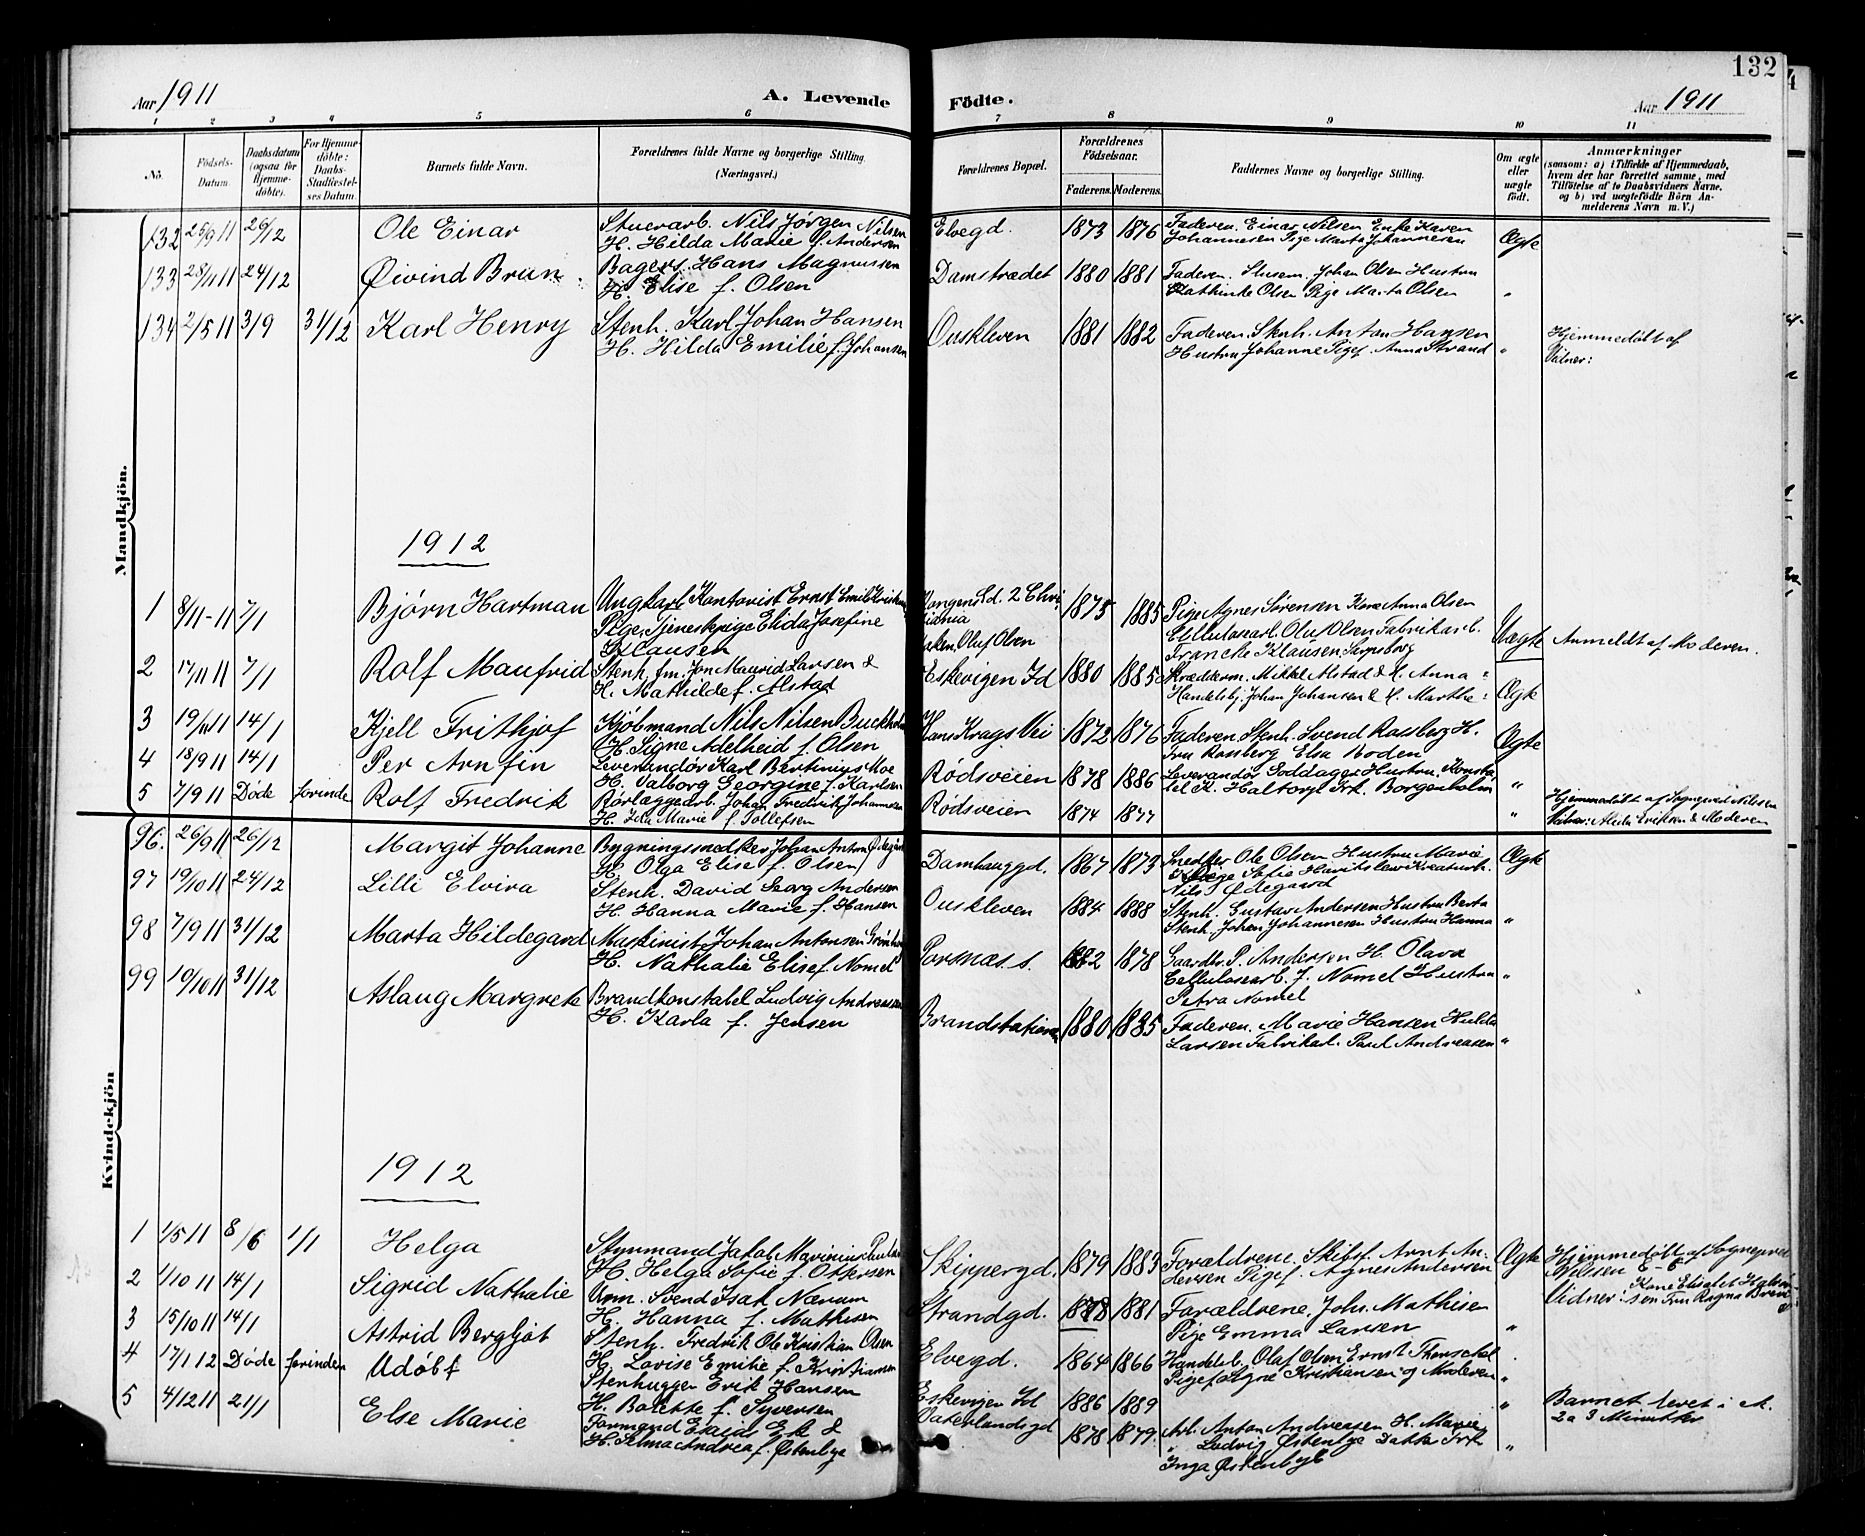 132
Aar 1911
A. Levende
Födte.
Aar 1911
1 2 3 4 5 6 7 8 9 10 11
No.
Födsels-Datum.
Daabsdatum (ogsaa for Hjemmedöbte).
For Hjemmedöbte: Daabs-Stadfæstelses Datum.
Barnets fulde Navn.
Forældrenes fulde Navne og borgerlige Stilling. (Næringsvei.)
Forældrenes Bopæl.
Forældrenes Födselsaar.
Faderens. Moderens.
Faddernes Navne og borgerlige Stilling.
Om ægte eller uægte födt.
Anmærkninger
(saasom: a) i Tilfælde af Hjemmedaab, hvem der har forrettet samme, med Tilföielse af to Daabsvidners Navne. og b) ved uægtefödte Börn Anmelderens Navn m. V.)
Mandkjön.
132 25/9 11 26/12 Ole Einar Stuerarb. Nils Jørgen Nilsen Elvegd. 1873 1876 Faderen. Einar Nilsen Enke Karen
H. Hilda Marie f. Andersen Johannesen Pige Marta Johannesen Ægte
133 28/11 11 24/12 Øivind Brun Bagers. Hans Magnussen Damstrædet 1880 1881 Faderen. Johan Olsen Hustru
H. Elise f. Olsen Kathinke Olsen Pige Marta Olsen "
134 2/5 11 3/9 31/12 Karl Henry Stenh. Karl Johan Hansen Ouskleven 1881 1882 Faderen. Stenh. Anton Hansen Hjemmedøbt af
H. Hilda Emilie f. Johansen Hustru Johanne Pigef. Anna Strand " Vidner:
1912
1 8/11-11 7/1 Bjørn Hartman Ungkarl Kontorist Ernst Emil Kongens Gd. 2 Christiania 1875 1885 Pige Agnes Sørensen Kone Anna Olsen
Pige, Tjenestepige Elida Josefine Klausen Oluf Olsen Cellulosearb. Oluf Olsen Fabrikarb. Uægte Anmeldt af Moderen.
Francke Klausen Sarpsborg
2 17/11 11 7/1 Rolf Manfrid Stenh. fm. Jon Maurid Larsen & Eskevigen Id 1880 1885 Skrædderm. Mikkel Alstad & H. Anna
H. Mathilde f. Alstad Handelsbj. Johan Johansen & H. Marthe Ægte
3 19/11 11 14/1 Kjell Frithjof Kjøbmand Nils Nilsen Hans Krags Vei 1872 1876 Faderen. Stenh. Svend Rossberg H.
H. Signe Adelheid f. Olsen Fru Rossberg Elsa Boden Ægte
4 18/9 11 14/1 Per Arnfin Leverandør Karl Bertinius Moe Rødsveien 1878 1886 Leverandør Hustru.
H. Valborg Georgine f. Karlsen Haltorp Frk. Borgenholm "
5 7/9 11 Døde forinden Rolf Fredrik Rørlæggearb. Johan Fredrik Johannesen Rødsveien 1874 1877 " Hjemmedøbt af Sogneprest Nilsen
H. Ida Marie f. Tollefsen Vidner: Alida Eriksen & Moderen
Kvindekjön
96. 26/9 11 26/12 Margit Johanne Bygningssnedker Johan Anton Ødegård Damhauggd. 1867 1873 Snedker Ole Olsen Hustru Marie Ægte
H. Olga Elise f. Olsen Sofie
Nils Ødegaard
97 19/10 11 24/12 Lilli Elvira Stenh. David Georg Andersen Ouskleven 1884 1888 Stenh. Gustav Andersen Hustru Berta
H. Hanna Marie f. Hansen Stenh. Johan Johannesen Hustru Hanna "
98 7/9 11 31/12 Marta Hildegard Maskinist Johan Antonsen Pornæss. 1882 1878 Gaardbr. P. Andersen H. Olava
H. Nathalie Elise f. Nomel Cellulosearb. J. Nomel Hustru "
Petra Nomel
99 19/10 11 31/12 Aslaug Margrete Brandkonstabel Ludvig Andreassen Brandstationen 1880 1885 Faderen. Marie Hansen Hulda
H. Karla f. Jensen Larsen Fabrikarb. Paul Andreasen "
1912
1 1/5 11 8/6 1/1 Helga Styrmand Jakob Marinius Skippergd. 1879 1883 Forældrene. Skibsf. Arnt An- Ægte Hjemmedøbt af Sogneprest
H. Helga Sofie f. Ottersen dersen Pigef. Agnes Andersen Nilsen
2 1/10 11 14/1 Sigrid Nathalie Svend Isak Nærum Strandgd. 1878 1881 Forældrene, Joh. Mathisen Vidner: Kone Elisabet Halvorsen Fru Ragna
H. Hanna f. Mathisen Pige Emma Larsen "
3 15/10 11 14/1 Astrid Bergljot Stenh. Fredrik Ole Kristian Olsen Elvegd. 1864 1866 Handelsb. Olaf Olsen Ernst Therschel
H. Lovise Emilie f. Kristiansen Pigef. Signe Kristiansen og Moderen "
4 17/1 12 Døde forinden Udøbt Stenhugger Erik Hansen Eskevigen Id 1886 1889 " Barnet levet i ca.
H. Bolette f. Syversen 2 a 3 Minutter
5 4/12 11 21/1 Else Marie Formand Enok Ek & Vaterlandsgd 1878 1879 Arb. Anton Andreasen H. Marie
H. Alma Andrea f. Østenbye " Ludvig Østenbye Datter Frk "
Inga Østenbye